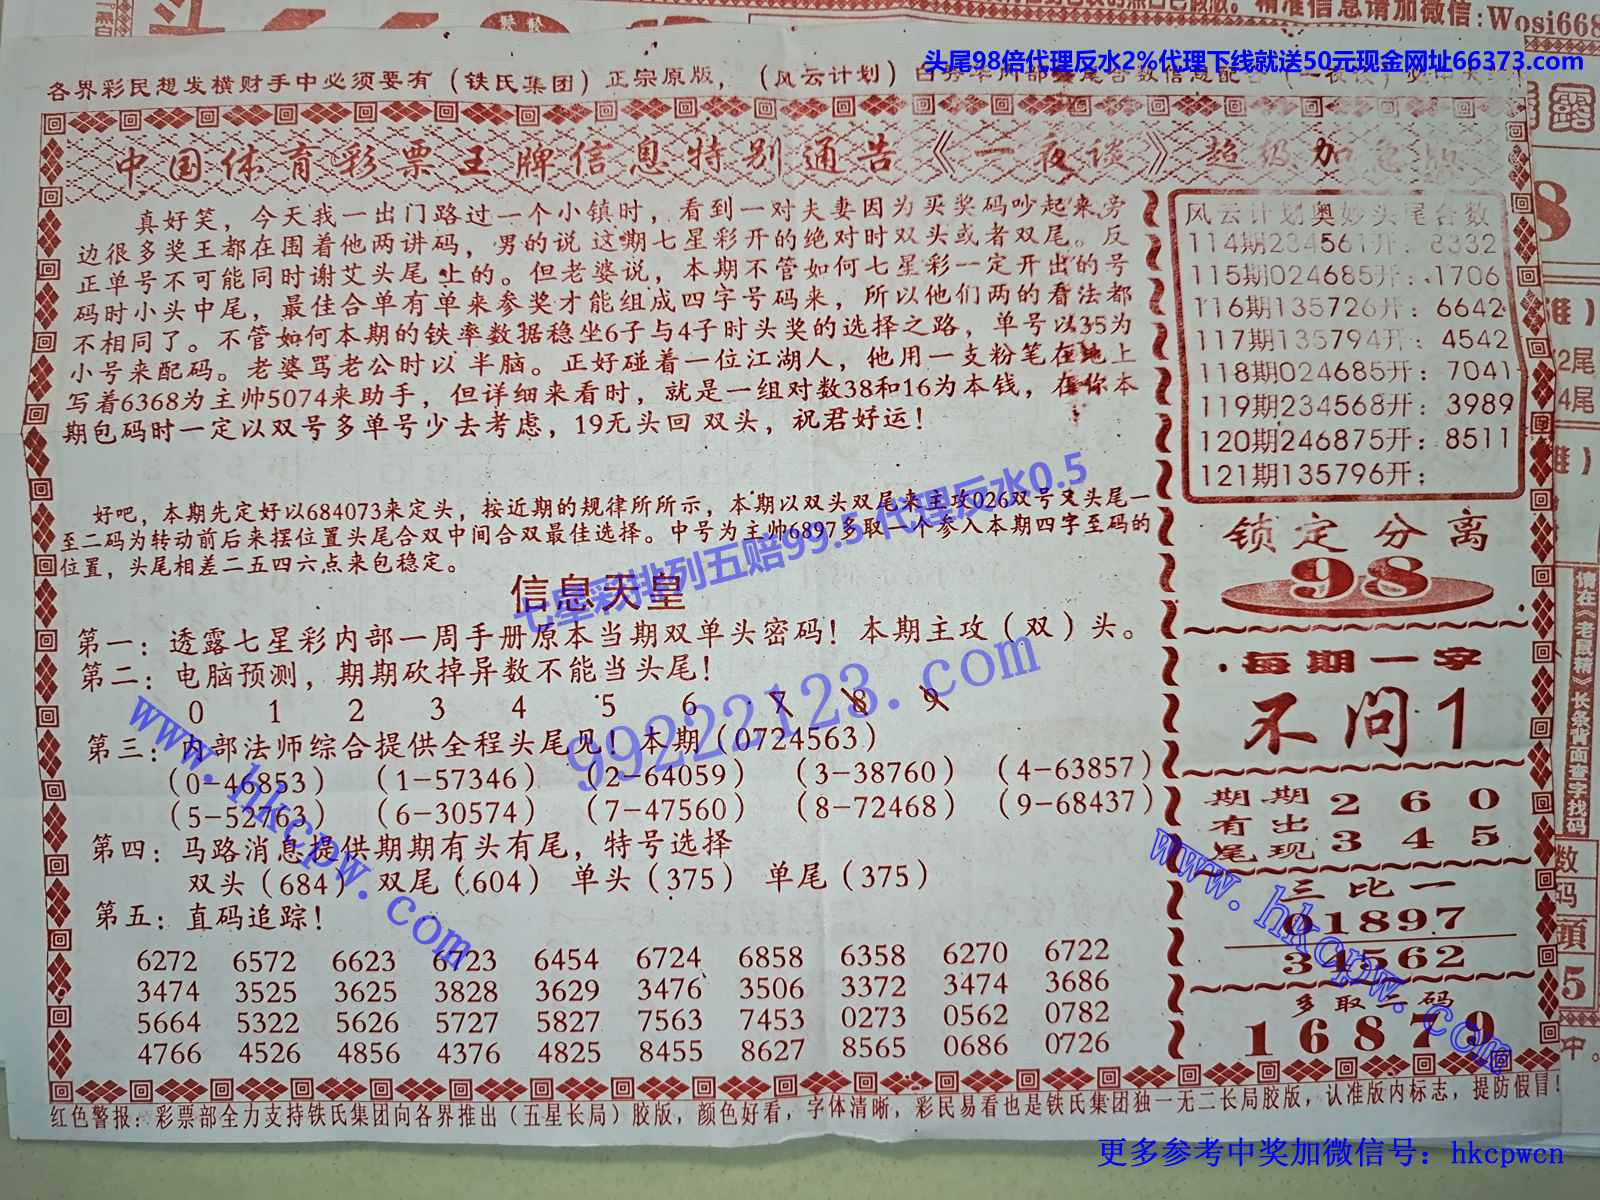 精准信息请加微信:Wosi668
头尾98倍代理反水2%代理下线就送50元现金网址66373.com
各界彩民想发横财手中必须要有（铁氏集团）正宗原版，（风云计划）
中国体育彩票王牌信息特别通告《一夜谈》超级加
真好笑，今天我一出门路过一个小镇时，看到一对夫妻因为买奖码吵起来旁
边很多奖王都在围着他两讲码，男的说 这期七星彩开的绝对时双头或者双尾。反
正单号不可能同时谢艾头尾 上的。但老婆说，本期不管如何七星彩一定开出的号
码时小头中尾，最佳合单有单来参奖才能组成四字号码来，所以他们两的看法都
不相同了。不管如何本期的铁率数据稳坐6子与4子时头奖的选择之路，单号以35为
小号来配码。老婆骂老公时以 半脑。正好碰着一位江湖人，他用一支粉笔在地上
写着6368为主帅5074来助手，但详细来看时，就是一组对数38和16为本钱，在你本
期包码时一定以双号多单号少去考虑，19无头回 双头，祝君好运！
好吧，本期先定好以684073来定头，按近期的规律所所示，本期以双头双尾来主攻026双号又头尾一
至二码为转动前后来摆位置头尾合双中间合双最佳选择。中号为主帅6897多取一个参入本期四字至码的
位置，头尾相差二五四六点来包稳定。
七星彩排列五赔99.5 代理反水0.5
信息天皇
第一：透露七星彩内部一周手册原本当期双单头密码！本期主攻（双）头。
第二：电脑预测，期期砍掉异数不能当头尾！
0 1 2 3 4 5 6 7 8 9
第三：内部法师综合提供全程头尾见！本期（0724563）
（0-46853）（1-57346）（2-64059）（3-38760）（4-63857）
（5-52763）（6-30574）（7-47560）（8-72468）（9-68437）
第四：马路消息提供期期有头有尾，特号选择
双头（684） 双尾（604） 单头（375） 单尾（375）
第五：直码追踪！
6272 6572 6623 6723 6454 6724 6858 6358 6270 6722
3474 3525 3625 3828 3629 3476 3506 3372 3474 3686
5664 5322 5626 5727 5827 7563 7453 0273 0562 0782
4766 4526 4856 4376 4825 8455 8627 8565 0686 0726
风云计划奥妙头尾合数
114期234561开：8332
115期024685开：1706
116期135726开：6642
117期135794开：4542
118期024685开：7041
119期234568开：3989
120期246875开：8511
121期135796开：
锁定分离
98
每期一字
不问1
期期 2 6 0
有出
尾现 3 4 5
三比一
01897
34562
多取二码
16879
红色警报：彩票部全力支持铁氏集团向各界推出（五星长局）胶版，颜色好看，字体清晰，彩民易看也是铁氏集团独一无二长局胶版，认准版内标志，提防假冒！
www.hkcpw.com
99222123.com
www.hkcpw.com
露
8
2尾
4尾
请在《老鼠精》长条背面查字找码
数
码
頭
5
中。
更多参考中奖加微信号：hkcpwcn